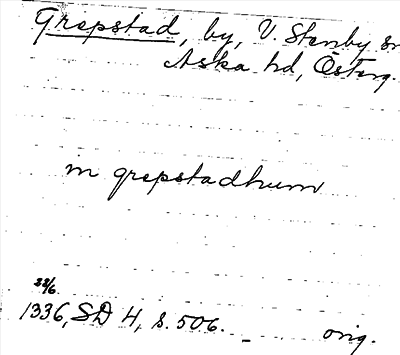 Grepstad, by, V. Stenby sn
Aska hd, Österg.
m grepstadhum
22/6
1336, SD 4, s. 506.
orig.